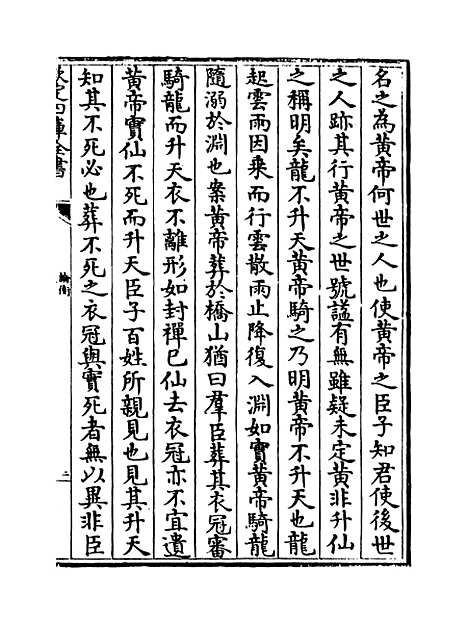 名之為黄帝何世之人也使黄帝之臣子知君使後世
之人跡其行黄帝之世號諡有無雖疑未定黄非升仙
之稱明矣龍不升天黄帝騎之乃明黄帝不升天也龍
起雲雨因乗而行雲散雨止降復入淵如實黄帝騎龍
隨溺於淵也案黄帝葬於橋山猶曰羣臣葬其衣冠審
騎龍而升天衣不離形如封禪已仙去衣冠亦不宜遺
黄帝實仙不死而升天臣子百姓所親見也見其升天
知其不死必也葬不死之衣冠與實死者無以異非臣
欽定四庫全書
論衡
二